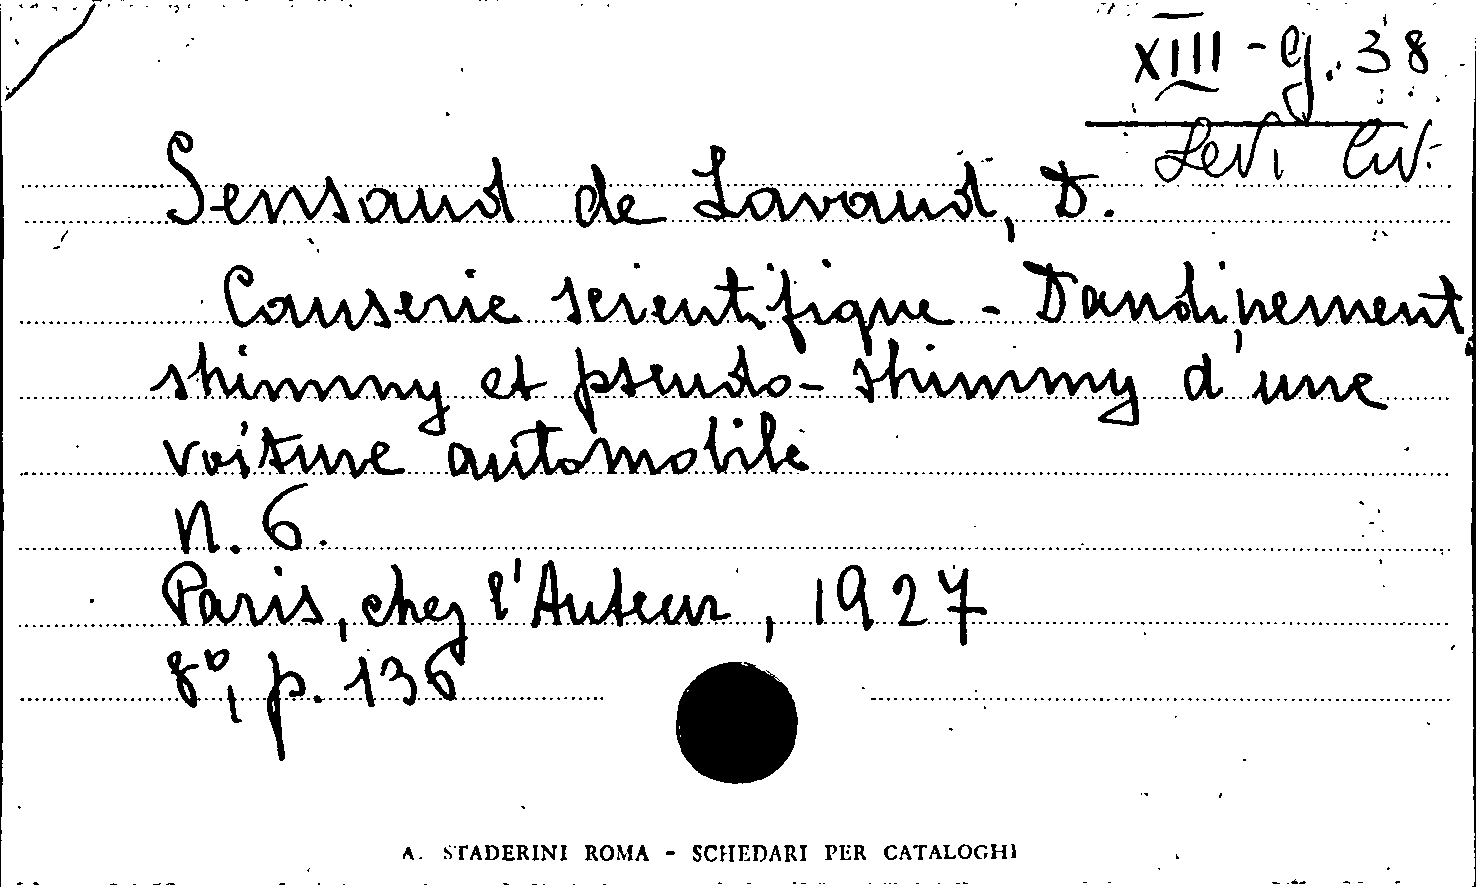 XIII - G. 38
Levi Civ.
Sensaud de Lavaud, D.
Causerie scientifique - Dandinement,
shimmy et pseudo-shimmy d'une
voiture automobile
N. 6.
Paris, chez l'Auteur, 1927
8°, p. 136
A. STADERINI ROMA - SCHEDARI PER CATALOGHI